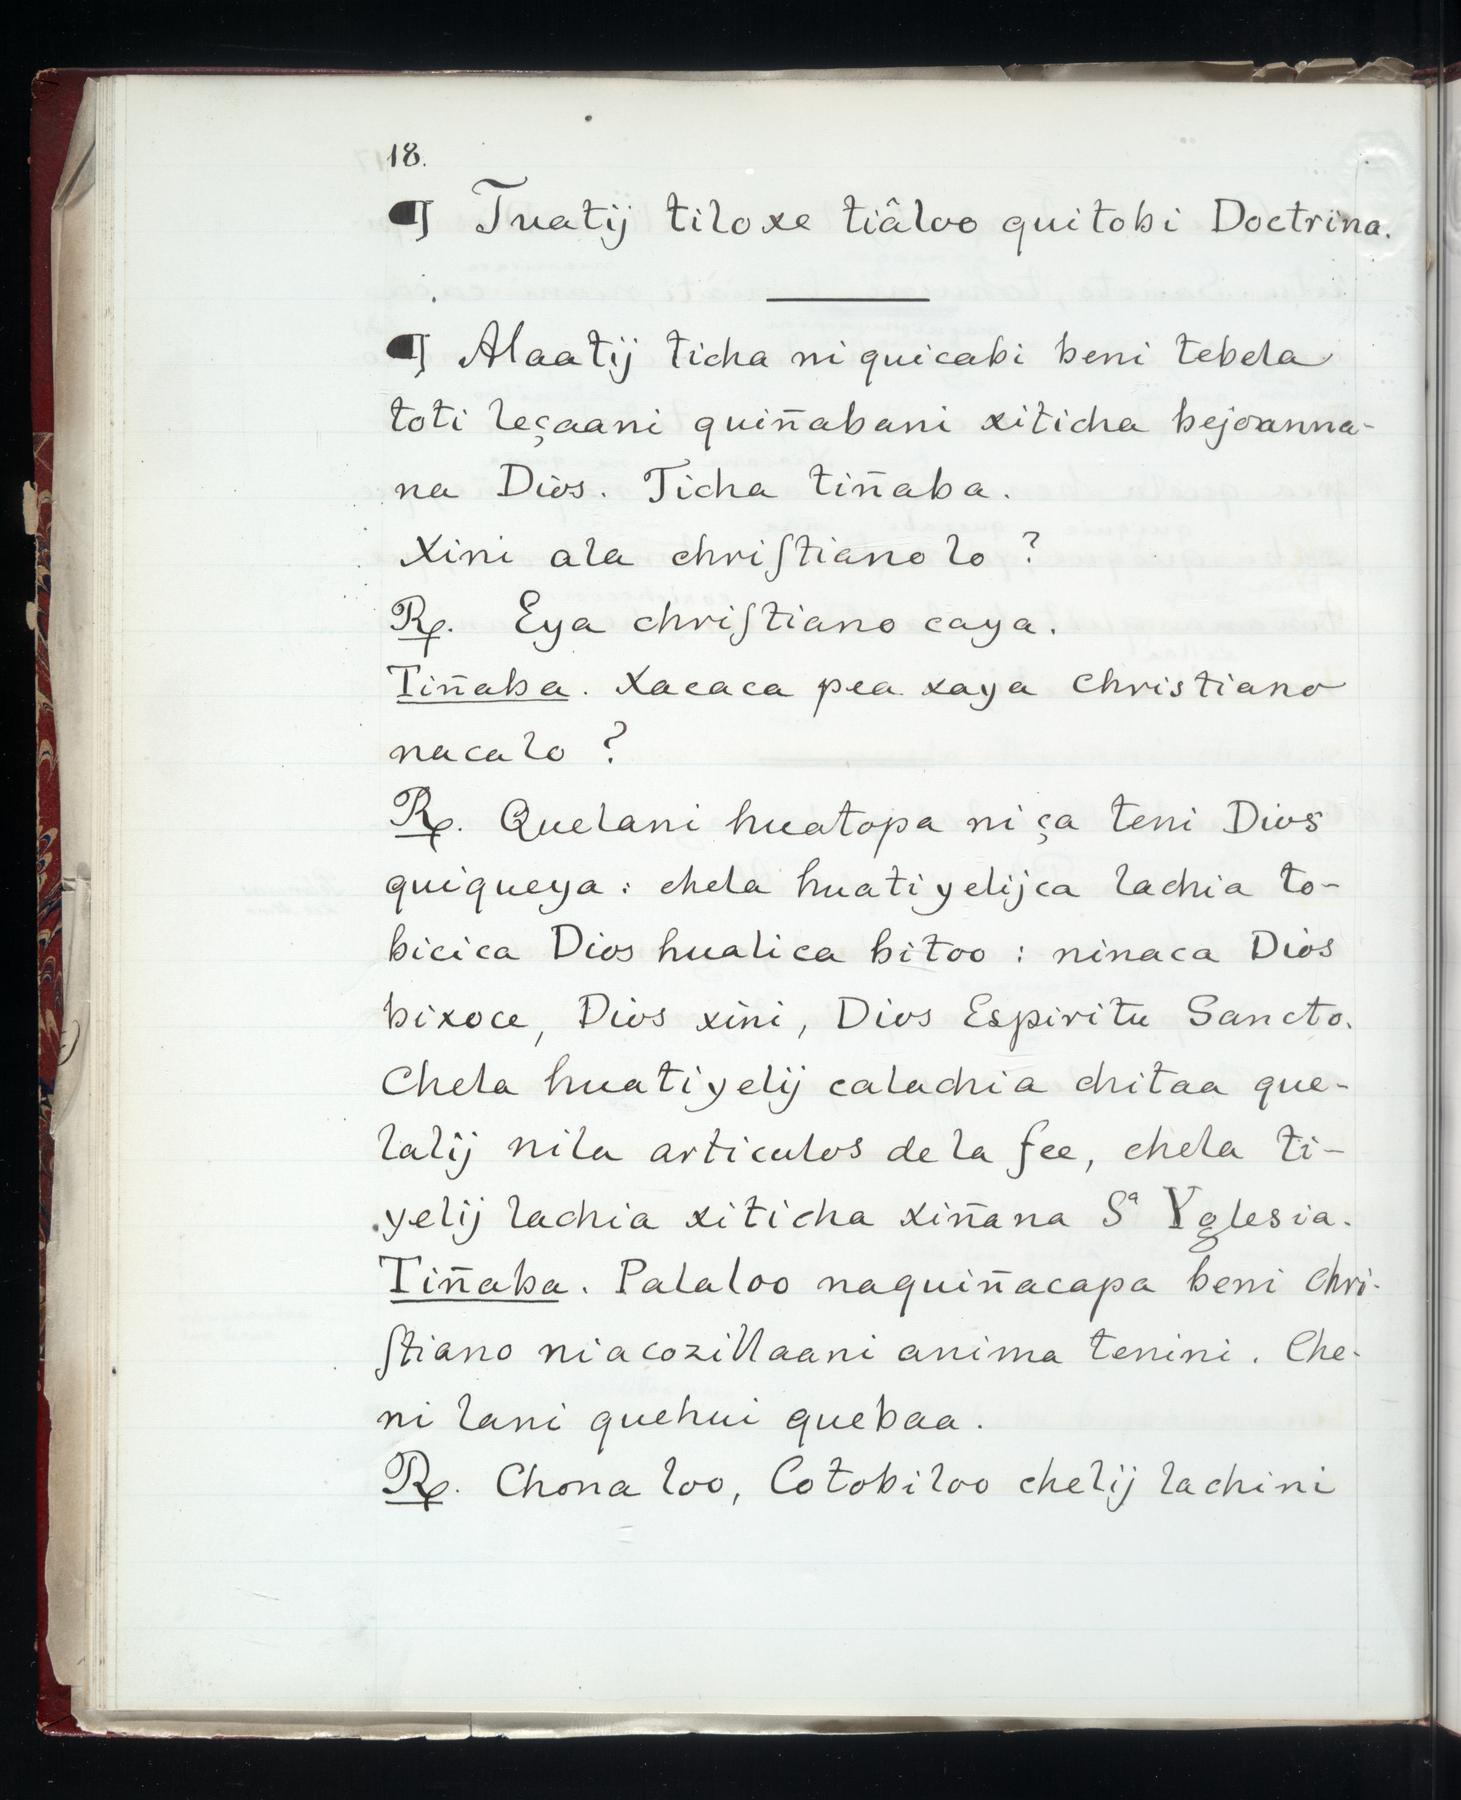 18.
¶ Tuatij tiloxe tiâloo quitobi Doctrina.
¶ Alaatij ticha ni quicabi beni tebela
toti leçaani quiñabani xiticha bejoanna-
na Dios. Ticha tiñaba.
Xini ala chriſtiano lo ?
R. Eya chriſtiano caya.
Tiñaba. Xacaca pea xaya christiano
nacalo ?
R. Quelani huatopa ni ça teni Dios
quiqueya : chela huatiyelijca lachia to-
bicica Dios hualica bitoo : ninaca Dios
bixoce, Dios xini, Dios Espiritu Sancto.
Chela huatiyelij calachia chitaa que-
lalij nila articulos de la fee, chela ti-
yelij lachia xiticha xiñana Sª Yglesia.
Tiñaba. Palaloo naquiñacapa beni chri-
ſtiano niacozillaani anima tenini. Che-
ni lani quehui quebaa.
R. Chona loo, Cotobiloo chelij lachini